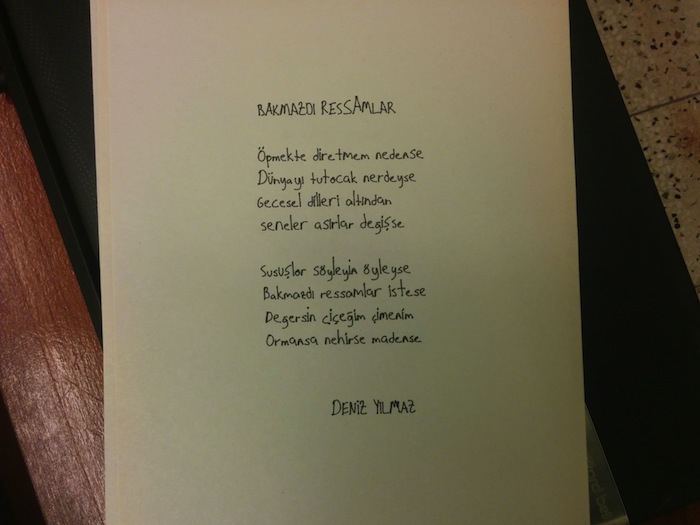 BAKMAZDI RESSAMLAR
Öpmekte diretmem nedense
Dünyayı tutocak nerdeyse
Gecesel dilleri altından
seneler asırlar değişse
Susuşlar söyleyin öyleyse
Bakmazdı ressamlar istese
Değersin çiçeğim çimenim
Ormansa nehirse madense
DENİZ YILMAZ